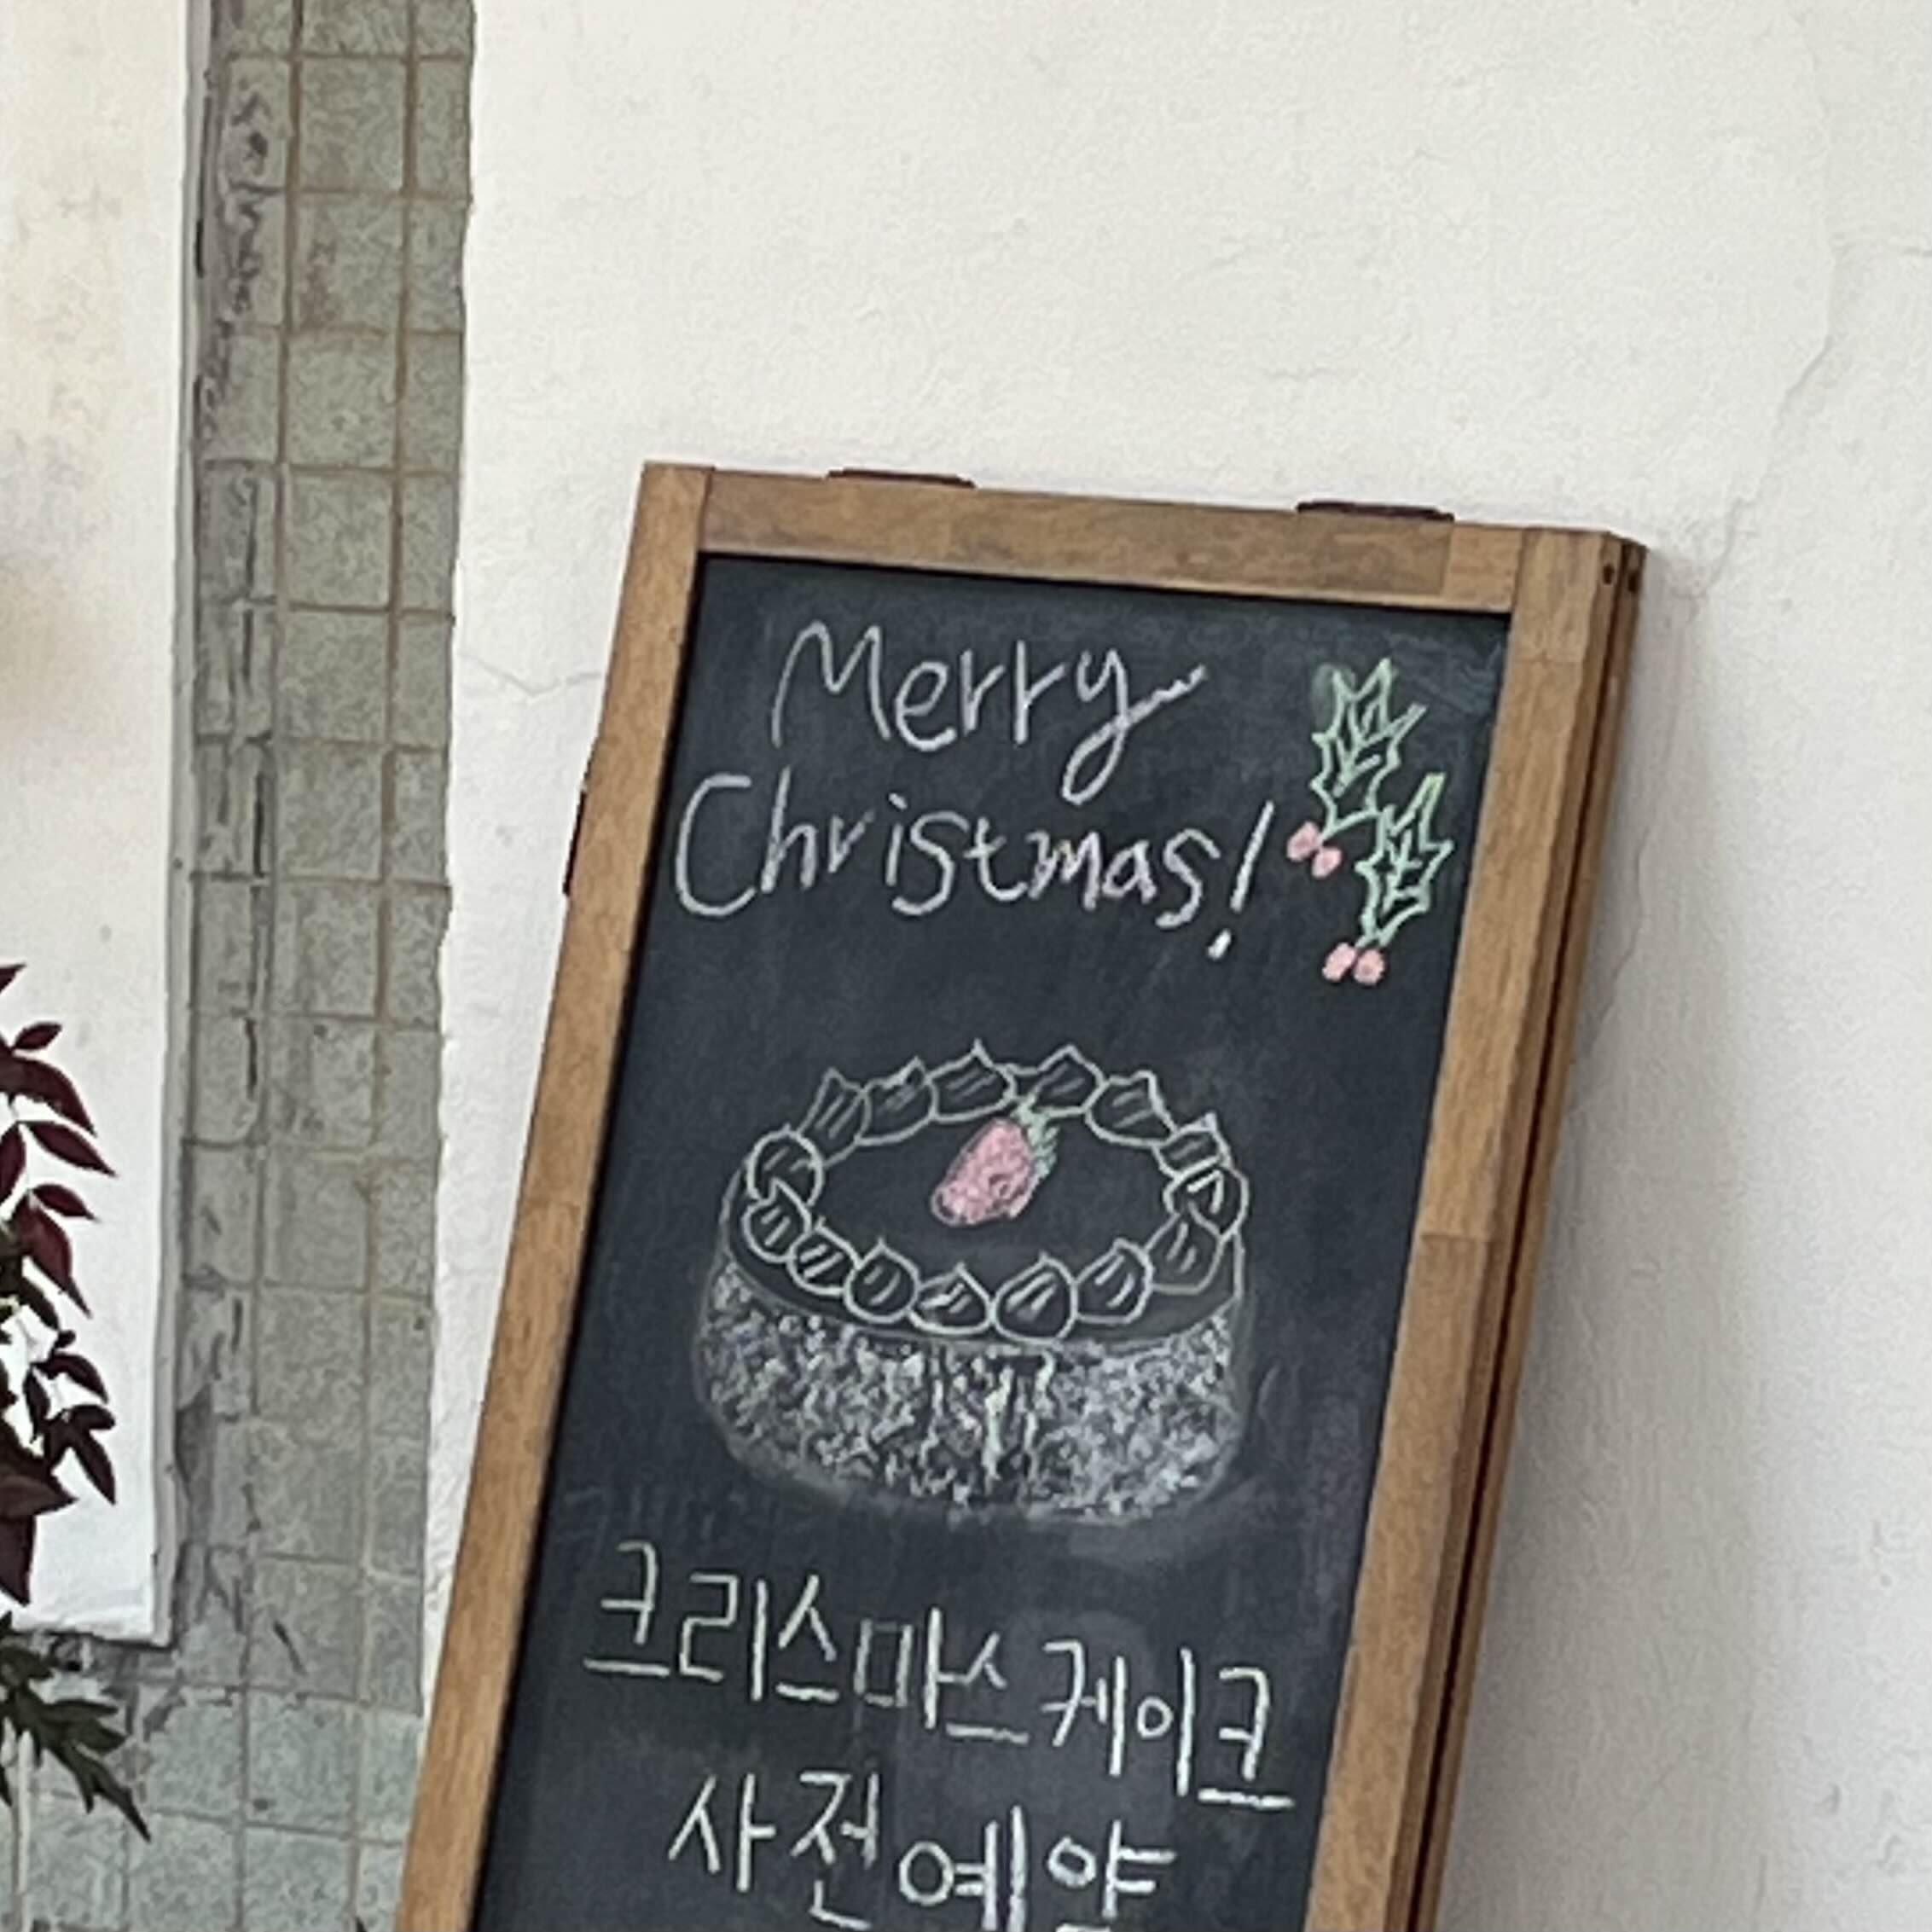 Merry
Christmas!
크리스마스 케이크
사전예약